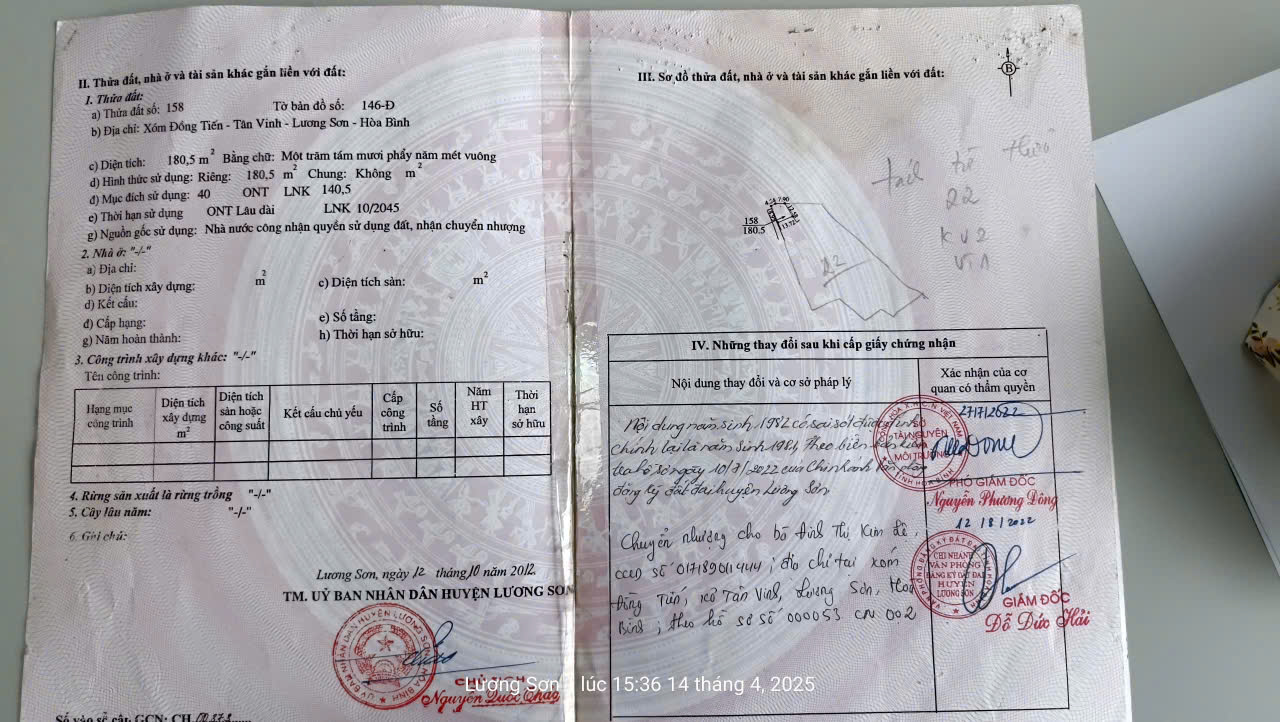 II. Thửa đất, nhà ở và tài sản khác gắn liền với đất:
1. Thửa đất:
a) Thửa đất số: 158 Tờ bản đồ số: 146-Đ
b) Địa chỉ: Xóm Đồng Tiến - Tân Vinh - Lương Sơn - Hòa Bình
c) Diện tích: 180,5 m2 Bằng chữ: Một trăm tám mươi phẩy năm mét vuông
d) Hình thức sử dụng: Riêng: 180,5 m2 Chung: Không m2
đ) Mục đích sử dụng: 40 ONT LNK 140,5
e) Thời hạn sử dụng ONT Lâu dài LNK 10/2045
g) Nguồn gốc sử dụng: Nhà nước công nhận quyền sử dụng đất, nhận chuyển nhượng
2. Nhà ở: "-/-"
a) Địa chỉ:
b) Diện tích xây dựng: m2 c) Diện tích sàn: m2
d) Kết cấu:
đ) Cấp hạng: e) Số tầng:
g) Năm hoàn thành: h) Thời hạn sở hữu:
3. Công trình xây dựng khác: "-/-"
Tên công trình:
Hạng mục công trình
Diện tích xây dựng m2
Diện tích sàn hoặc công suất
Kết cấu chủ yếu
Cấp công trình
Số tầng
Năm HT xây
Thời hạn sở hữu
4. Rừng sản xuất là rừng trồng "-/-"
5. Cây lâu năm: "-/-"
6. Ghi chú:
Lương Sơn, ngày 12 tháng 10 năm 2012
TM. UỶ BAN NHÂN DÂN HUYỆN LƯƠNG SƠN
CHỦ TỊCH
Nguyễn Quốc
Số vào sổ cấp GCN: CH
III. Sơ đồ thửa đất, nhà ở và tài sản khác gắn liền với đất:
B
tách từ thửa
22
KV2
VT1
158
180.5
7.90
13.92
22
IV. Những thay đổi sau khi cấp giấy chứng nhận
Nội dung thay đổi và cơ sở pháp lý
Xác nhận của cơ quan có thẩm quyền
Nội dung năm sinh 1982 có sai sót được đính
chính lại là năm sinh 1984, Theo biên bản kiểm
tra hồ sơ ngày 10/7/2022 của Chi nhánh Văn phòng
đăng ký đất đai huyện Lương Sơn.
27/7/2022
TÀI NGUYÊN
MÔI TRƯỜNG
PHÓ GIÁM ĐỐC
Nguyễn Phương Đông
Chuyển nhượng cho bà Đinh Thị Kim
CCCD số 017189001444; địa chỉ tại xóm
Đồng Tiến, xã Tân Vinh, Lương Sơn, Hòa
Bình; theo hồ sơ số 000053 CN 002
12/8/2022
CHI NHÁNH
VĂN PHÒNG
ĐĂNG KÝ ĐẤT ĐAI
HUYỆN
LƯƠNG SƠN
GIÁM ĐỐC
Đỗ Đức Hải
Lương Sơn lúc 15:36 14 tháng 4, 2025